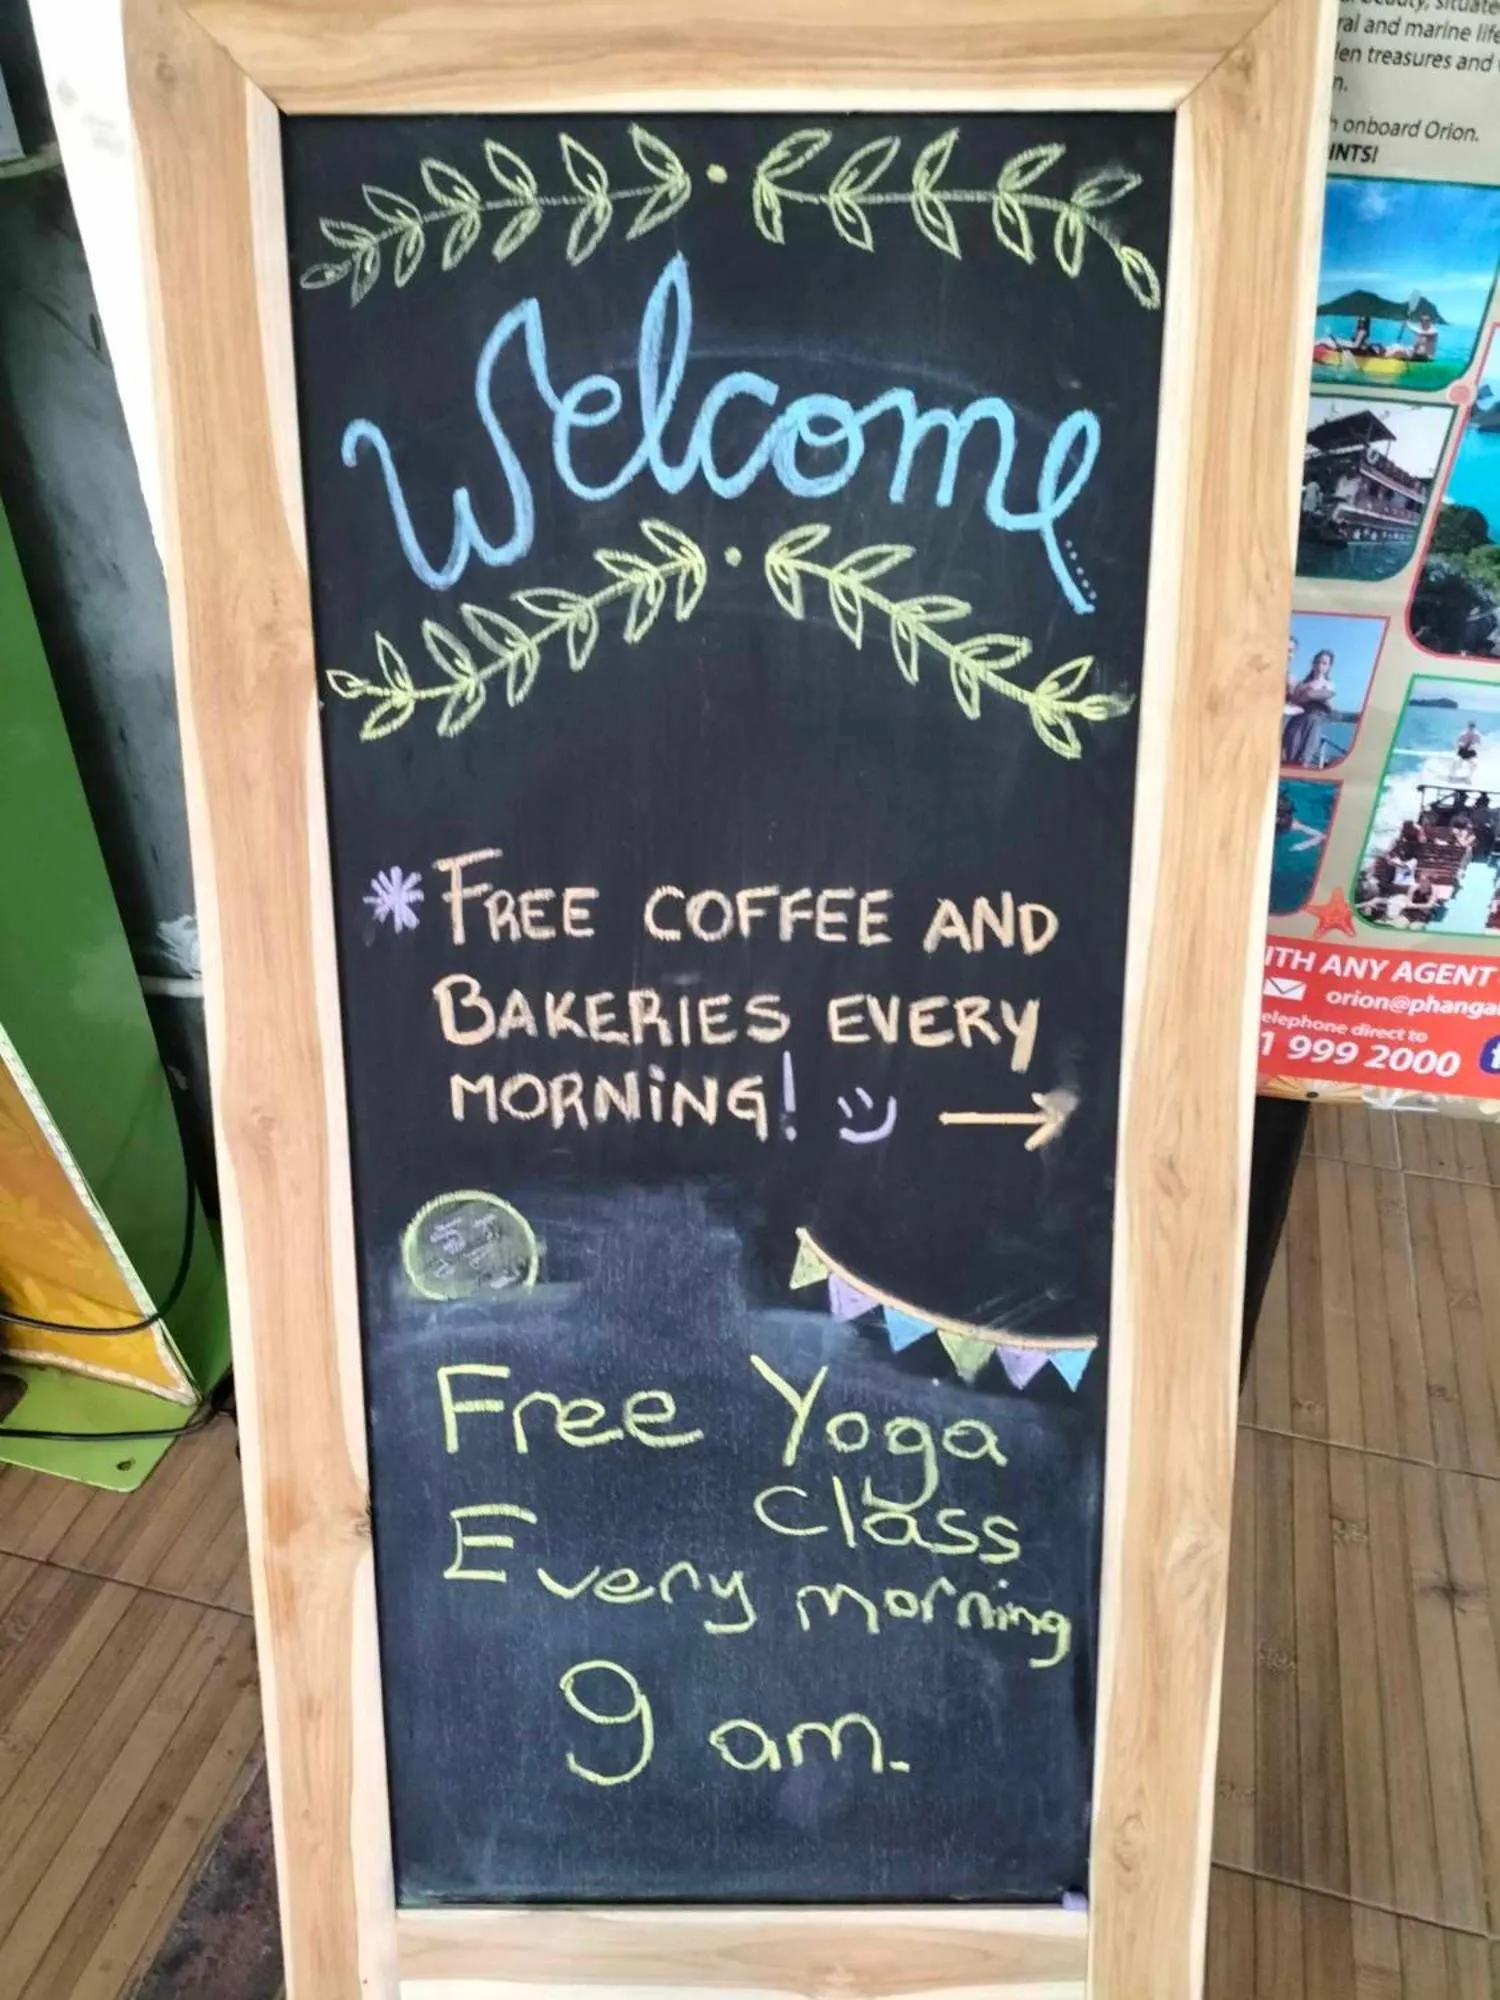 Welcome
* FREE COFFEE AND
BAKERIES EVERY
MORNiNG! :) →
Free Yoga
class
Every morning
9 am.
beauty, situate
ral and marine life
en treasures and
n.
h onboard Orion.
INTS!
ITH ANY AGENT
orion@phanga
elephone direct to
1 999 2000